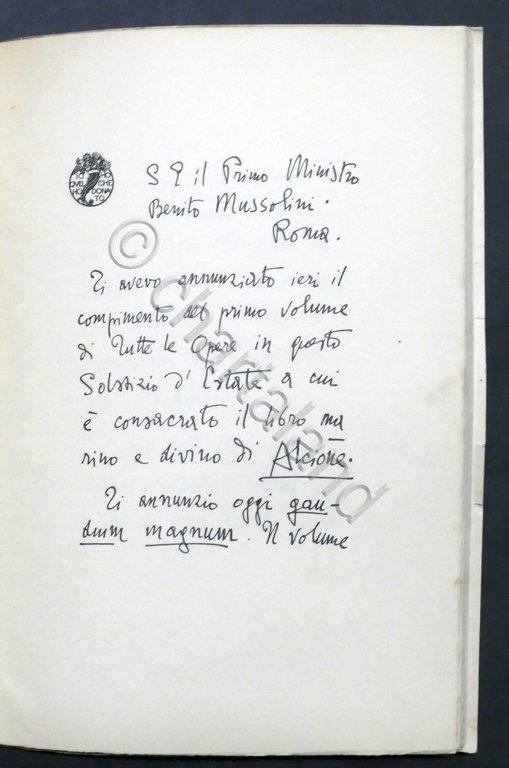 IO HO
QVEL CHE
HO DONA
TO
S E il Primo Ministro
Benito Mussolini.
Roma.
Ti avevo annunziato ieri il
compimento del primo volume
di Tutte le Opere in questo
Solstizio d'Estate a cui
è consacrato il libro ma
rino e divino di Alcione.
Ti annunzio oggi gau-
dium magnum. Il volume
© chartaland